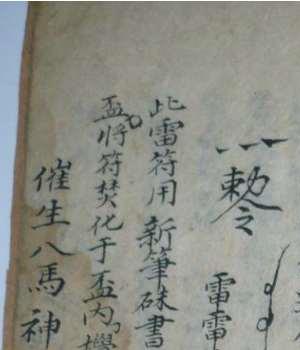 勅令
雷雷
此雷符用新筆硃書
盃將符焚化于盃內
催生八馬神